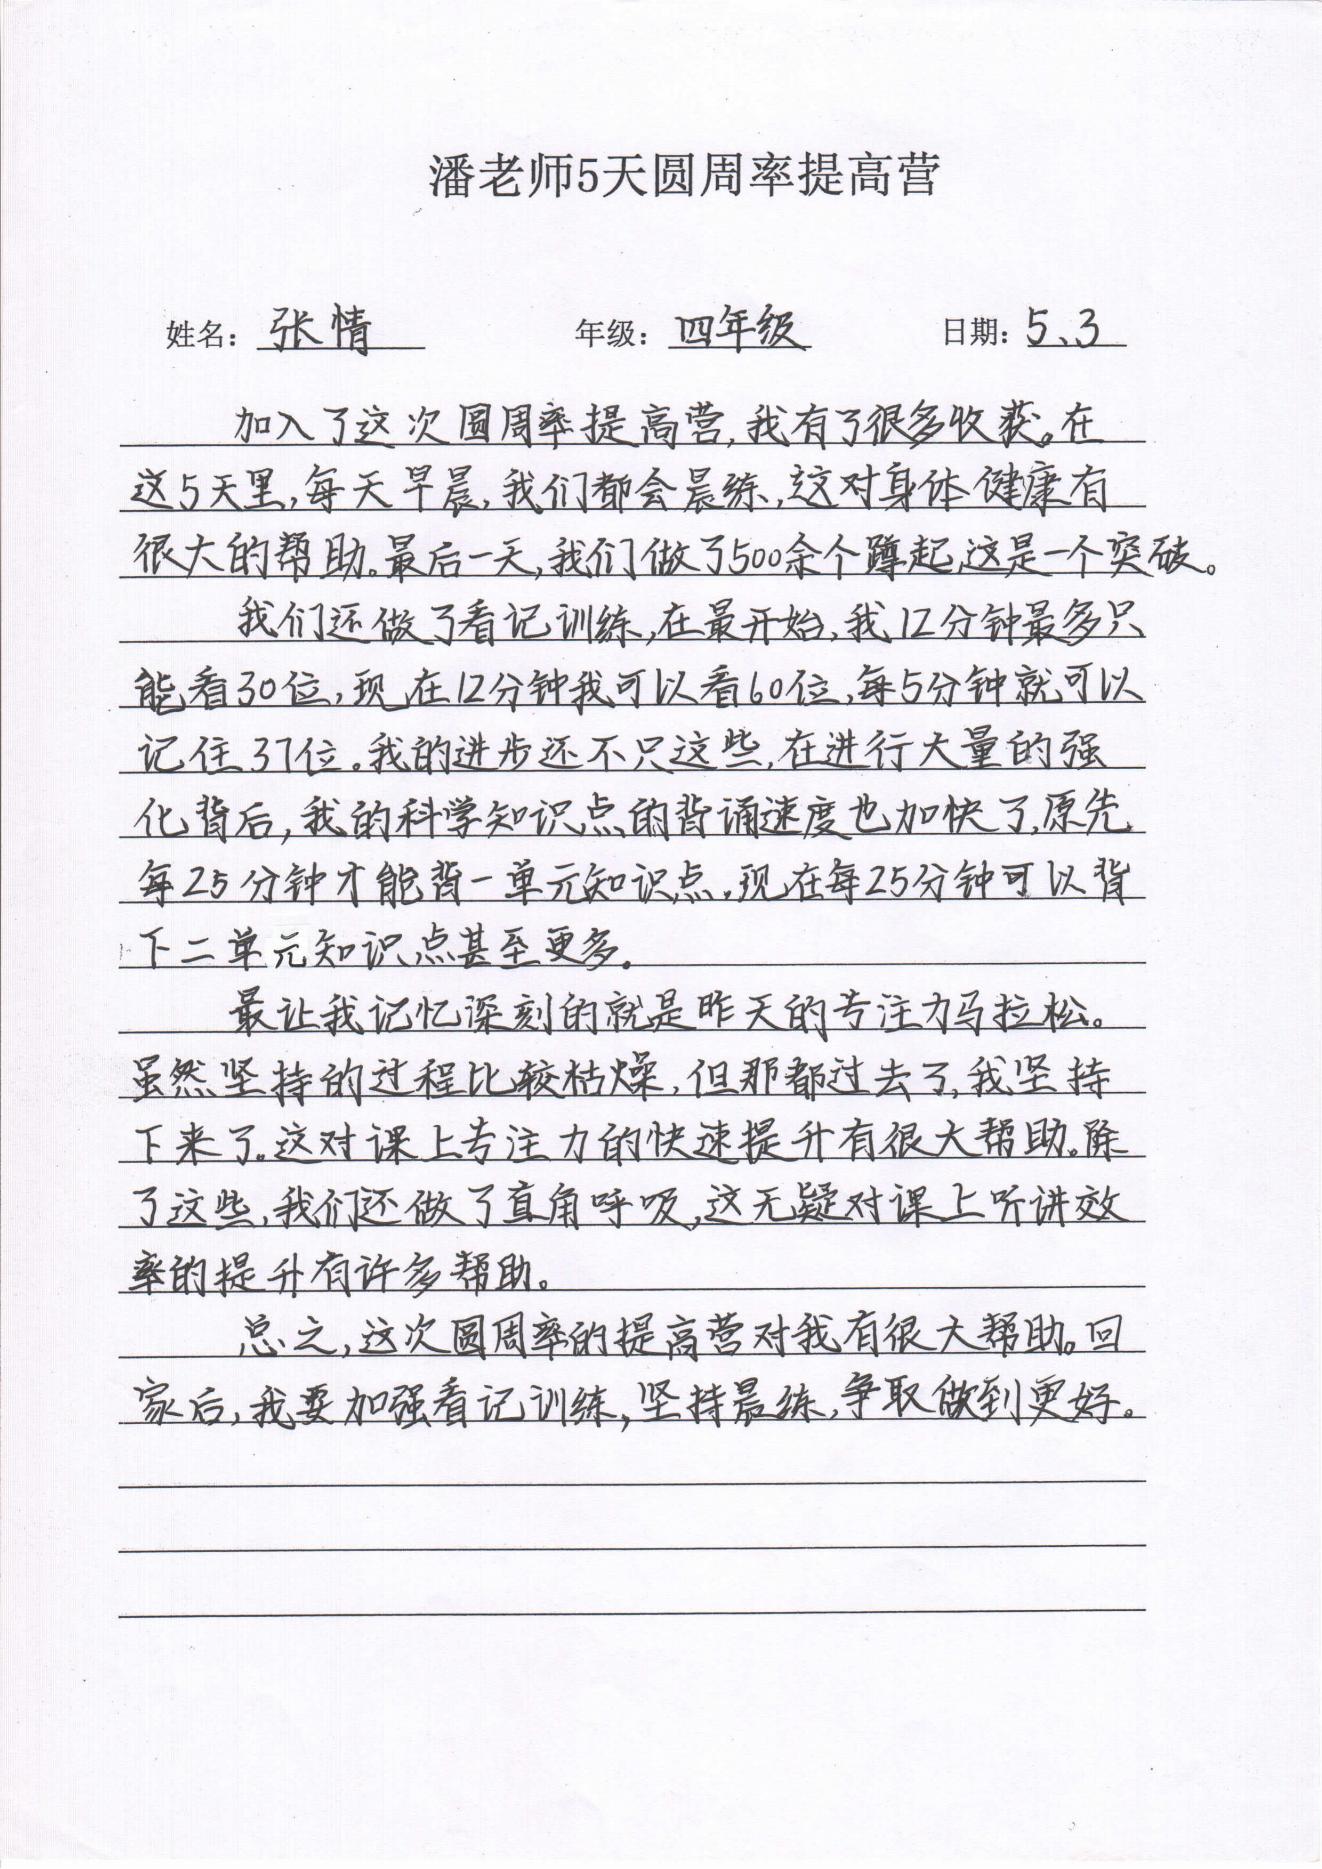 潘老师5天圆周率提高营
姓名：张情 年级：四年级 日期：5、3
加入了这次圆周率提高营，我有了很多收获。在
这5天里，每天早晨，我们都会晨练，这对身体健康有
很大的帮助。最后一天，我们做了500余个蹲起，这是一个突破。
我们还做了看记训练，在最开始，我12分钟最多只
能看30位，现在12分钟我可以看60位，每5分钟就可以
记住37位。我的进步还不只这些，在进行大量的强
化背后，我的科学知识点的背诵速度也加快了，原先
每25分钟才能背一单元知识点，现在每25分钟可以背
下二单元知识点甚至更多。
最让我记忆深刻的就是昨天的专注力马拉松。
虽然坚持的过程比较枯燥，但那都过去了，我坚持
下来了。这对课上专注力的快速提升有很大帮助。除
了这些，我们还做了直角呼吸，这无疑对课上听讲效
率的提升有许多帮助。
总之，这次圆周率的提高营对我有很大帮助。回
家后，我要加强看记训练，坚持晨练，争取做到更好。